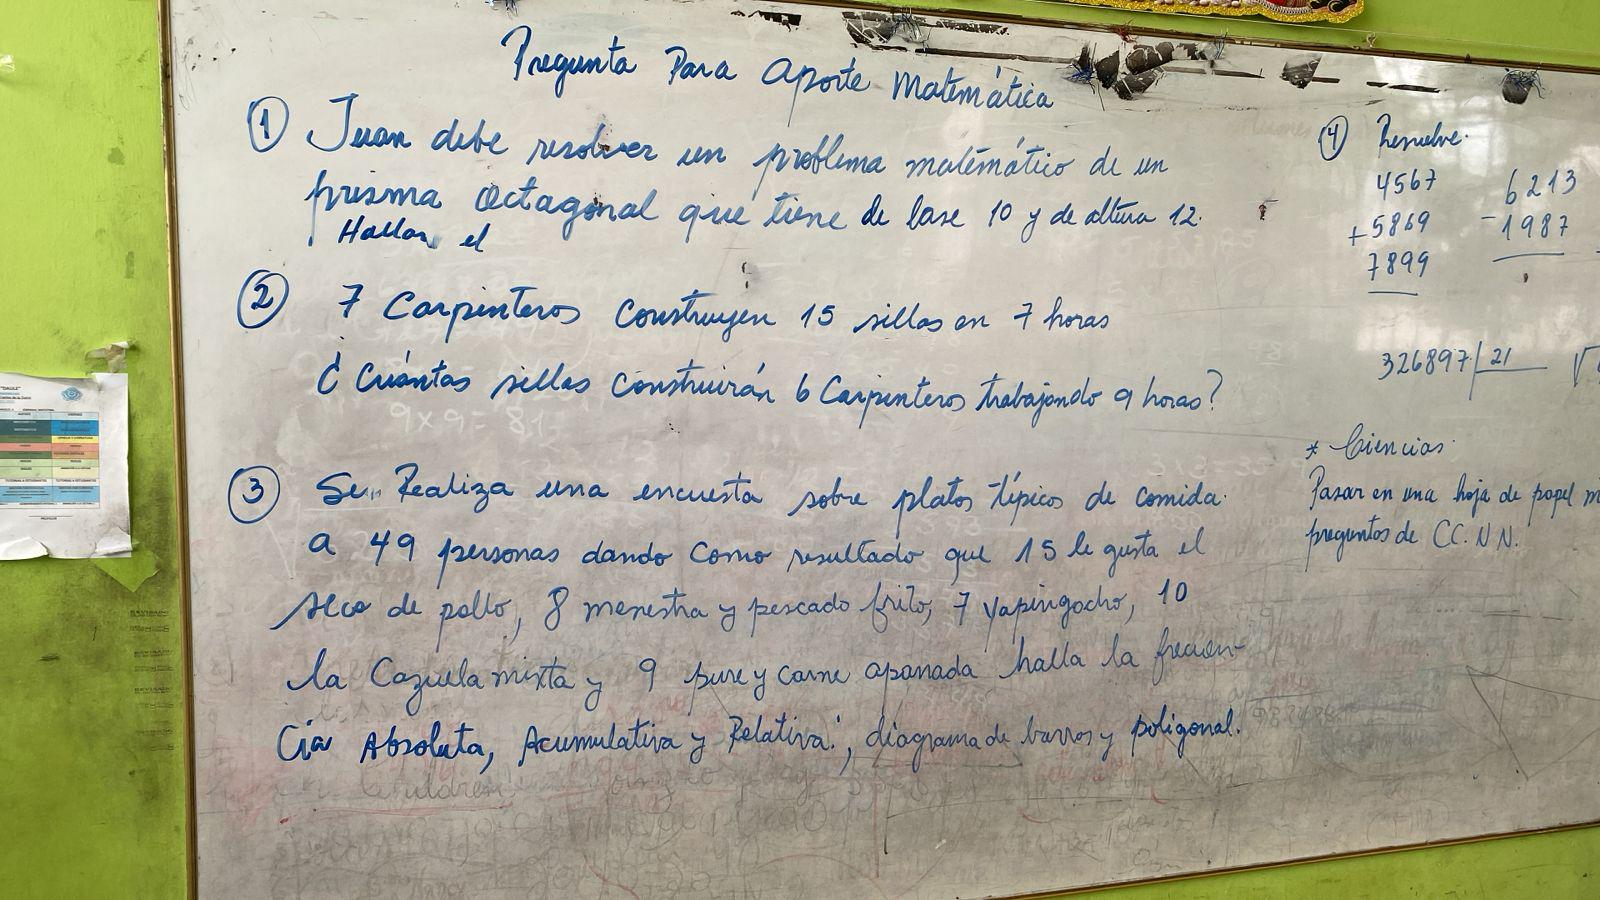 Pregunta Para aporte Matemática
① Juan debe resolver un problema matemático de un
prisma octagonal que tiene de base 10 y de altura 12.
Hallar el
② 7 Carpinteros construyen 15 sillas en 7 horas
¿Cuántas sillas construirán 6 Carpinteros trabajando 9 horas?
9x9= 81
③ Se Realiza una encuesta sobre platos típicos de comida.
a 49 personas dando como resultado que 15 le gusta el
seco de pollo, 8 menestra y pescado frito, 7 yapingacho, 10
la Cazuela mixta y 9 pure y carne apanada halla la frecuen
Cia Absoluta, Acumulativa y Relativa, diagrama de barras y poligonal.
④ Resuelve.
4567
+5869
7899
6213
-1987
326897 21
* Ciencias
Pasar en una hoja de papel
preguntas de CC.NN.